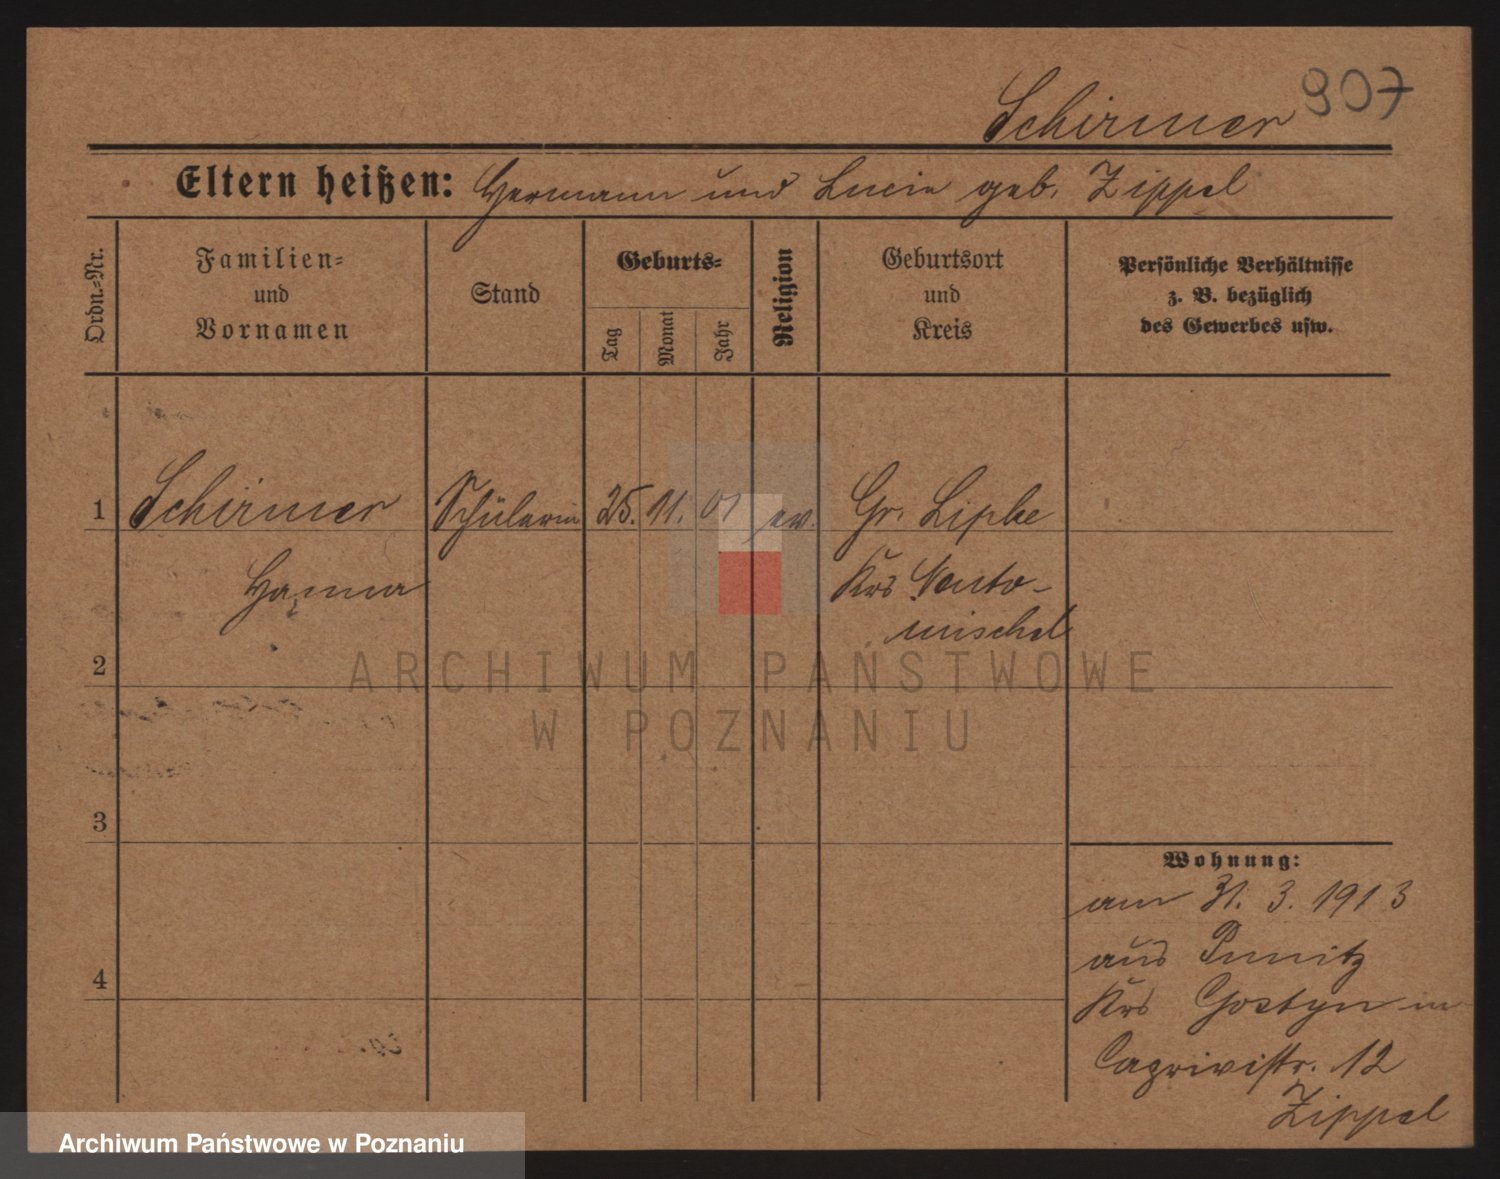 Schirmer 907
Eltern heißen: Hermann und Lucie geb. Zippel
Ordn.-Nr.
Familien-
und
Vornamen
Stand
Geburts-
Tag
Monat
Jahr
Religion
Geburtsort
und
Kreis
Persönliche Verhältnisse
z. B. bezüglich
des Gewerbes usw.
1 Schirmer Schülerin 25. 11. 01 ev. Gr. Lipke
Hanna Krs Neuto-
mischel
2
3
4
Wohnung:
am 31. 3. 1913
aus Punitz
Krs Gostyn in
Caprivistr. 12
Zippel
ARCHIWUM PAŃSTWOWE
W POZNANIU
Archiwum Państwowe w Poznaniu